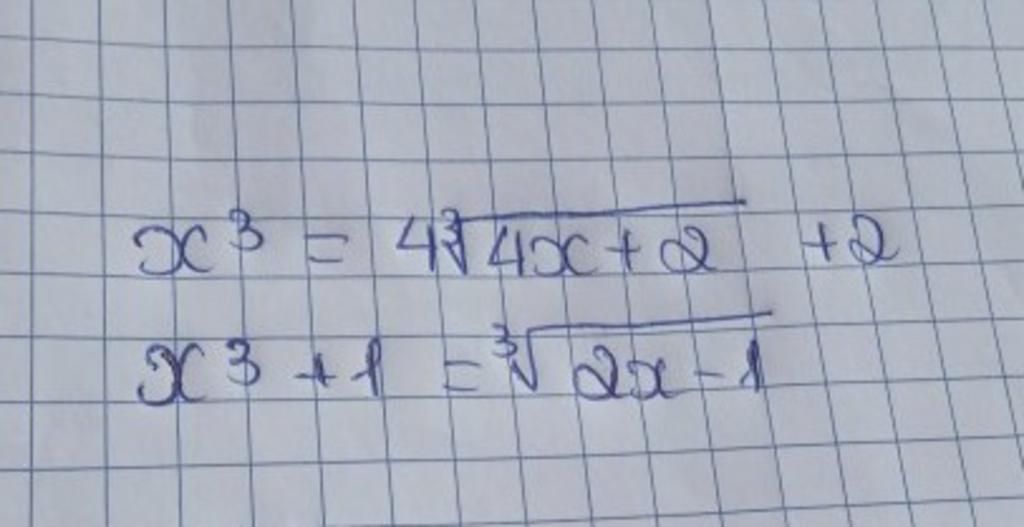 x³ = 4∛(4x+2) +2
x³ +1 = ∛(2x-1)